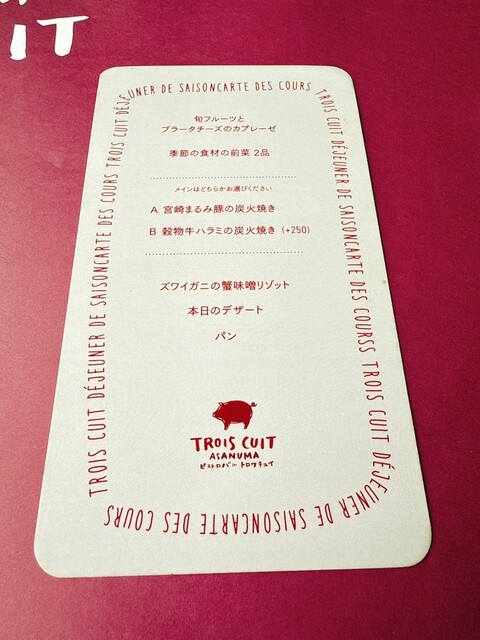 IT
TROIS CUIT DÉJEUNER DE SAISONCARTE DES COURS
TROIS CUIT DÉJEUNER DE SAISONCARTE DES COURSS
TROIS CUIT DÉJEUNER DE SAISONCARTE DES COURS
旬フルーツと
ブラータチーズのカプレーゼ
季節の食材の前菜 2品
メインはどちらかお選びください
A 宮崎まるみ豚の炭火焼き
B 穀物牛ハラミの炭火焼き (+250)
ズワイガニの蟹味噌リゾット
本日のデザート
パン
TROIS CUIT
ASANUMA
ビストロバル トロワキュイ